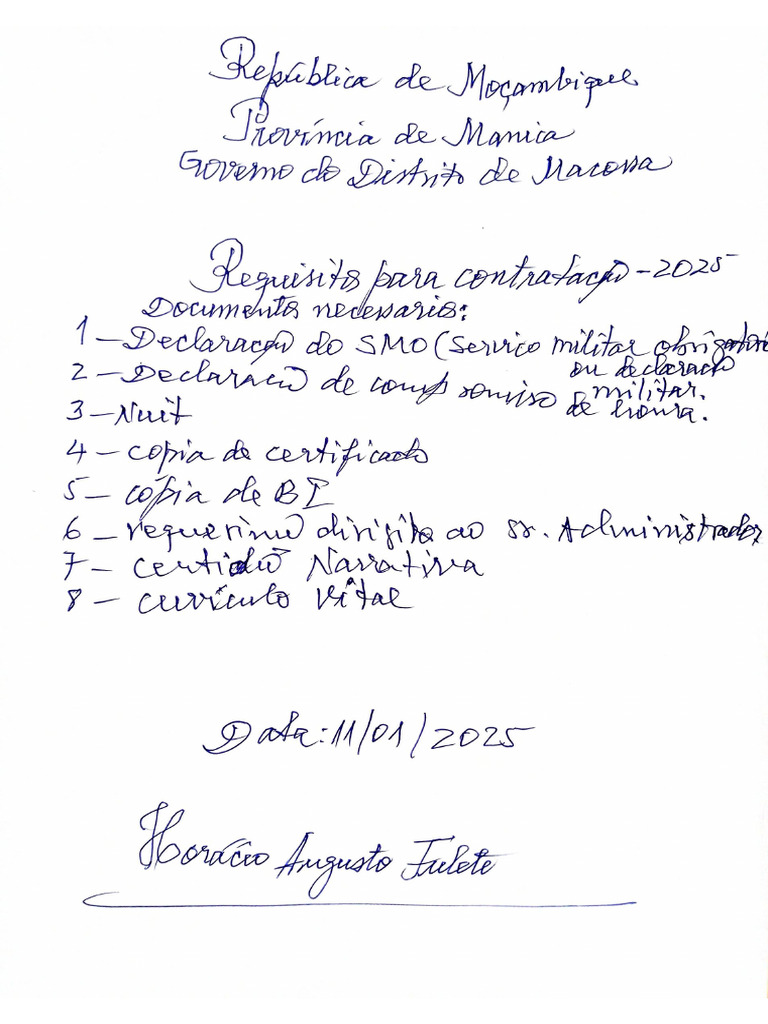 República de Moçambique
Província de Manica
Governo do Distrito de Macossa
Requisitos para contratação - 2025
Documentos necessarios:
1 - Declaração do SMO (Serviço militar obrigatório
ou declaração
militar.
2 - Declaração de compromiso de honra.
3 - Nuit
4 - copia de certificado
5 - cópia de BI
6 - requerimo dirigito ao Sr. Administrador
7 - certidão Narrativa
8 - currículo Vital
Data: 11/01/2025
Horácio Augusto Fulete